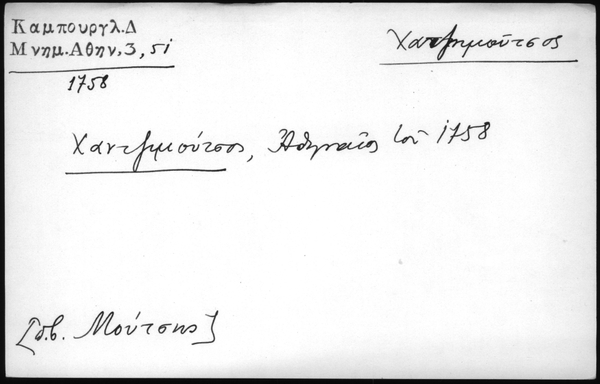 Καμπουργλ.Δ
Μνημ.Αθην.3, 51
1758
Χατζημούτσος
Χαντζιμούτσος, Ἀθηναῖος τοῦ 1758
[πβ. Μούτσης]